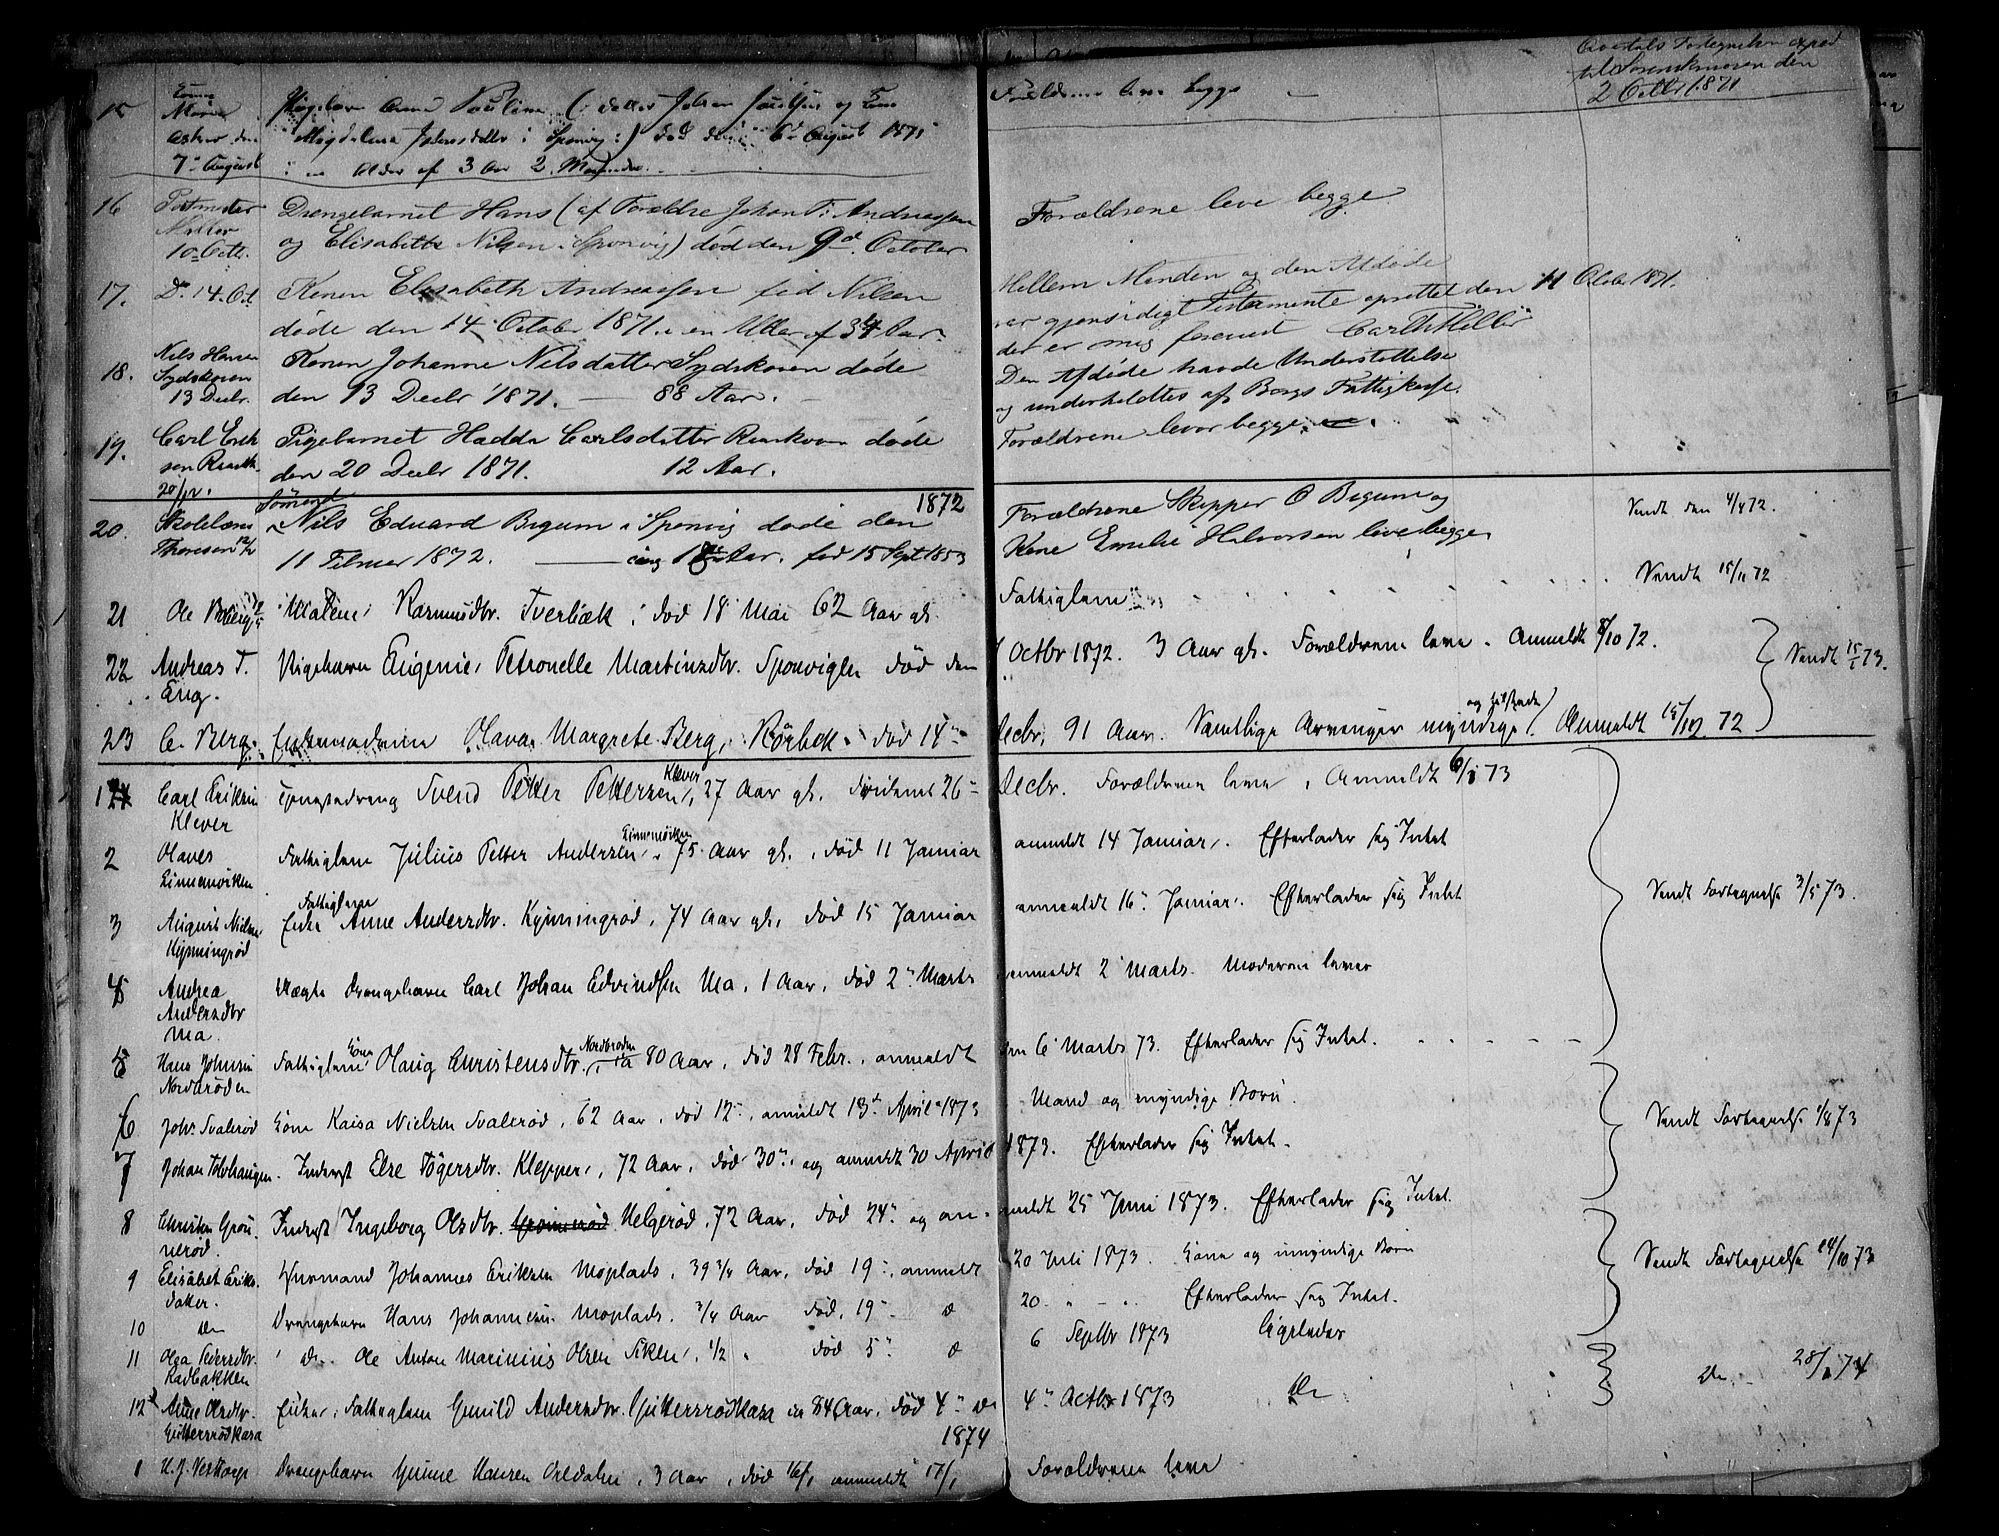 Qvartals Fortegnelse exped
til Sorenskriveren den
2 Octbr 1871
15 Pigebarn Anna Pauline (: datter Johan og
Maria
Magdalena i Sponvig :) død den 6 August 1871
7 August i en Alder af 3 Aar 2 Maaneder.
Forældrene leve begge
16 Postmester Drengebarnet Hans (af Forældre Johan T. Andreassen
Møller
10 Octb. og Elisabeth Nilsen i Sponvig) død den 9d October
Forældrene leve begge
17. Do 14. Oct Konen Elisabeth Andreassen fød Nilsen
døde den 14 October 1871 i en Alder af 34 Aar.
Mellem Manden og den Afdøde
var gjensidigt Testamente oprettet den 11 Octobr 1871.
der er mig forevist Carl Møller
18. Nils Hansen Konen Johanne Nilsdatter Sydskoven døde
Sydskoven
13 Decbr. den 13 Decbr 1871. — 88 Aar.
Den Afdøde havde Understøttelse
og underholdtes af Borgs Fattigkasse.
19. Carl Erik Pigebarnet Hadda Carlsdatter døde
sen
20/12. den 20 Decbr 1871. 12 Aar.
Forældrene lever begge.
1872
Sømand
20. Skolelærer Nils Eduard Begum i Sponvig døde den
Thoresen 12/2 11 Februar 1872. — 18 Aar. fød 15 Sept 1853
Forældrene Skipper O Begum og
Kone Emelie Halvorsen leve begge
Sendt den 4/4 72.
21 Ole Malene Rasmusdtr. Tverbæk, død 18 Mai 62 Aar gl.
Fattiglem Sendt 15/11 72
22 Andreas T. Pigebarn Eugenie Petronelle Martinsdtr. Sponvigen død den
Eng.
Octbr 1872. 3 Aar gl. Forældrene leve. Anmeldt 8/10 72.
Sendt 15/1 73.
23 C. Berg. Enkemadam Olava Margrete Berg, Rörbek. død 14
Decbr, 91 Aar. Samtlige Arvinger myndige og tilstæde Anmeldt 15/12 72
1 Carl Eriksen Tjenestedreng Svend Petter Pettersen, Klever 27 Aar gl. død 26
Klever
Decbr. Forældrene leve, Anmeldt 6/1 73
2 Olaves Fattiglem Julius Petter Andersen, 75 Aar gl. død 11 Januar
anmeldt 14 Januar. Efterlader sig Intet
3 August Nielsen Fattiglem Enke Anne Andersdtr. Kjönningröd, 74 Aar gl, død 15 Januar
Kjönningröd
anmeldt 16 Januar. Efterlader sig Intet
Sendt Fortegnelse 3/5 73.
4 Andrea uægte Drengebarn Carl Johan Edvindsen Ula, 1 Aar, død 2 Marts
Andersdtr
Ula.
anmeldt 2 Marts. Moderen lever
5 Hans Johnsen Fattiglem Kone Olaug Christensdtr. Nordbröden, ca 80 Aar, død 28 Febr., anmeldt
Nordbröden
den 6 Marts 73. Efterlader sig Intet.
6 Johs. Svaleröd Kone Kaisa Nielsen Svaleröd, 62 Aar, død 12, anmeldt 13de April 1873
Mand og myndige Børn.
Sendt Fortegnelse 1/8 73
7 Johan Inderst Else Tögersdtr. Klepper, 72 Aar, død 30 og anmeldt 30 April
1873. Efterlader sig Intet.
8 Christen Grön- Inderst Ingeborg Olsdtr. Helgeröd, 72 Aar, død 24 og an-
neröd.
meldt 25 Juni 1873. Efterlader sig Intet.
9 Elisabet Eriks- Huusmand Johannes Eriksen Moplads, 39 3/4 Aar, død 19, anmeldt
datter.
20 Juli 1873. Kone og umyndige Børn
Sendt Fortegnelse 14/10 73
10 do Drengebarn Hans Johannesen Moplads. 3/4 Aar død. 19 do
20. " - " Efterlader sig Intet.
11 Olga Pedersdtr. do Ole Anton Marinius Olsen 1/2 " død 5 do
Rødbakken
6 Septbr 1873 ligeledes
12 Anne Olsdtr. Enke, Fattiglem Gunild Andersdtr. Guttersrödkasa ca 84 Aar, død 4 do
Guttersrödkasa
4 Octbr 1873 do
Do. 28/1 74
1874
1 H. J. Vestorp Drengebarn Gunne Hansen 3 Aar, død 16/1 anmeldt 17/1
Forældrene leve